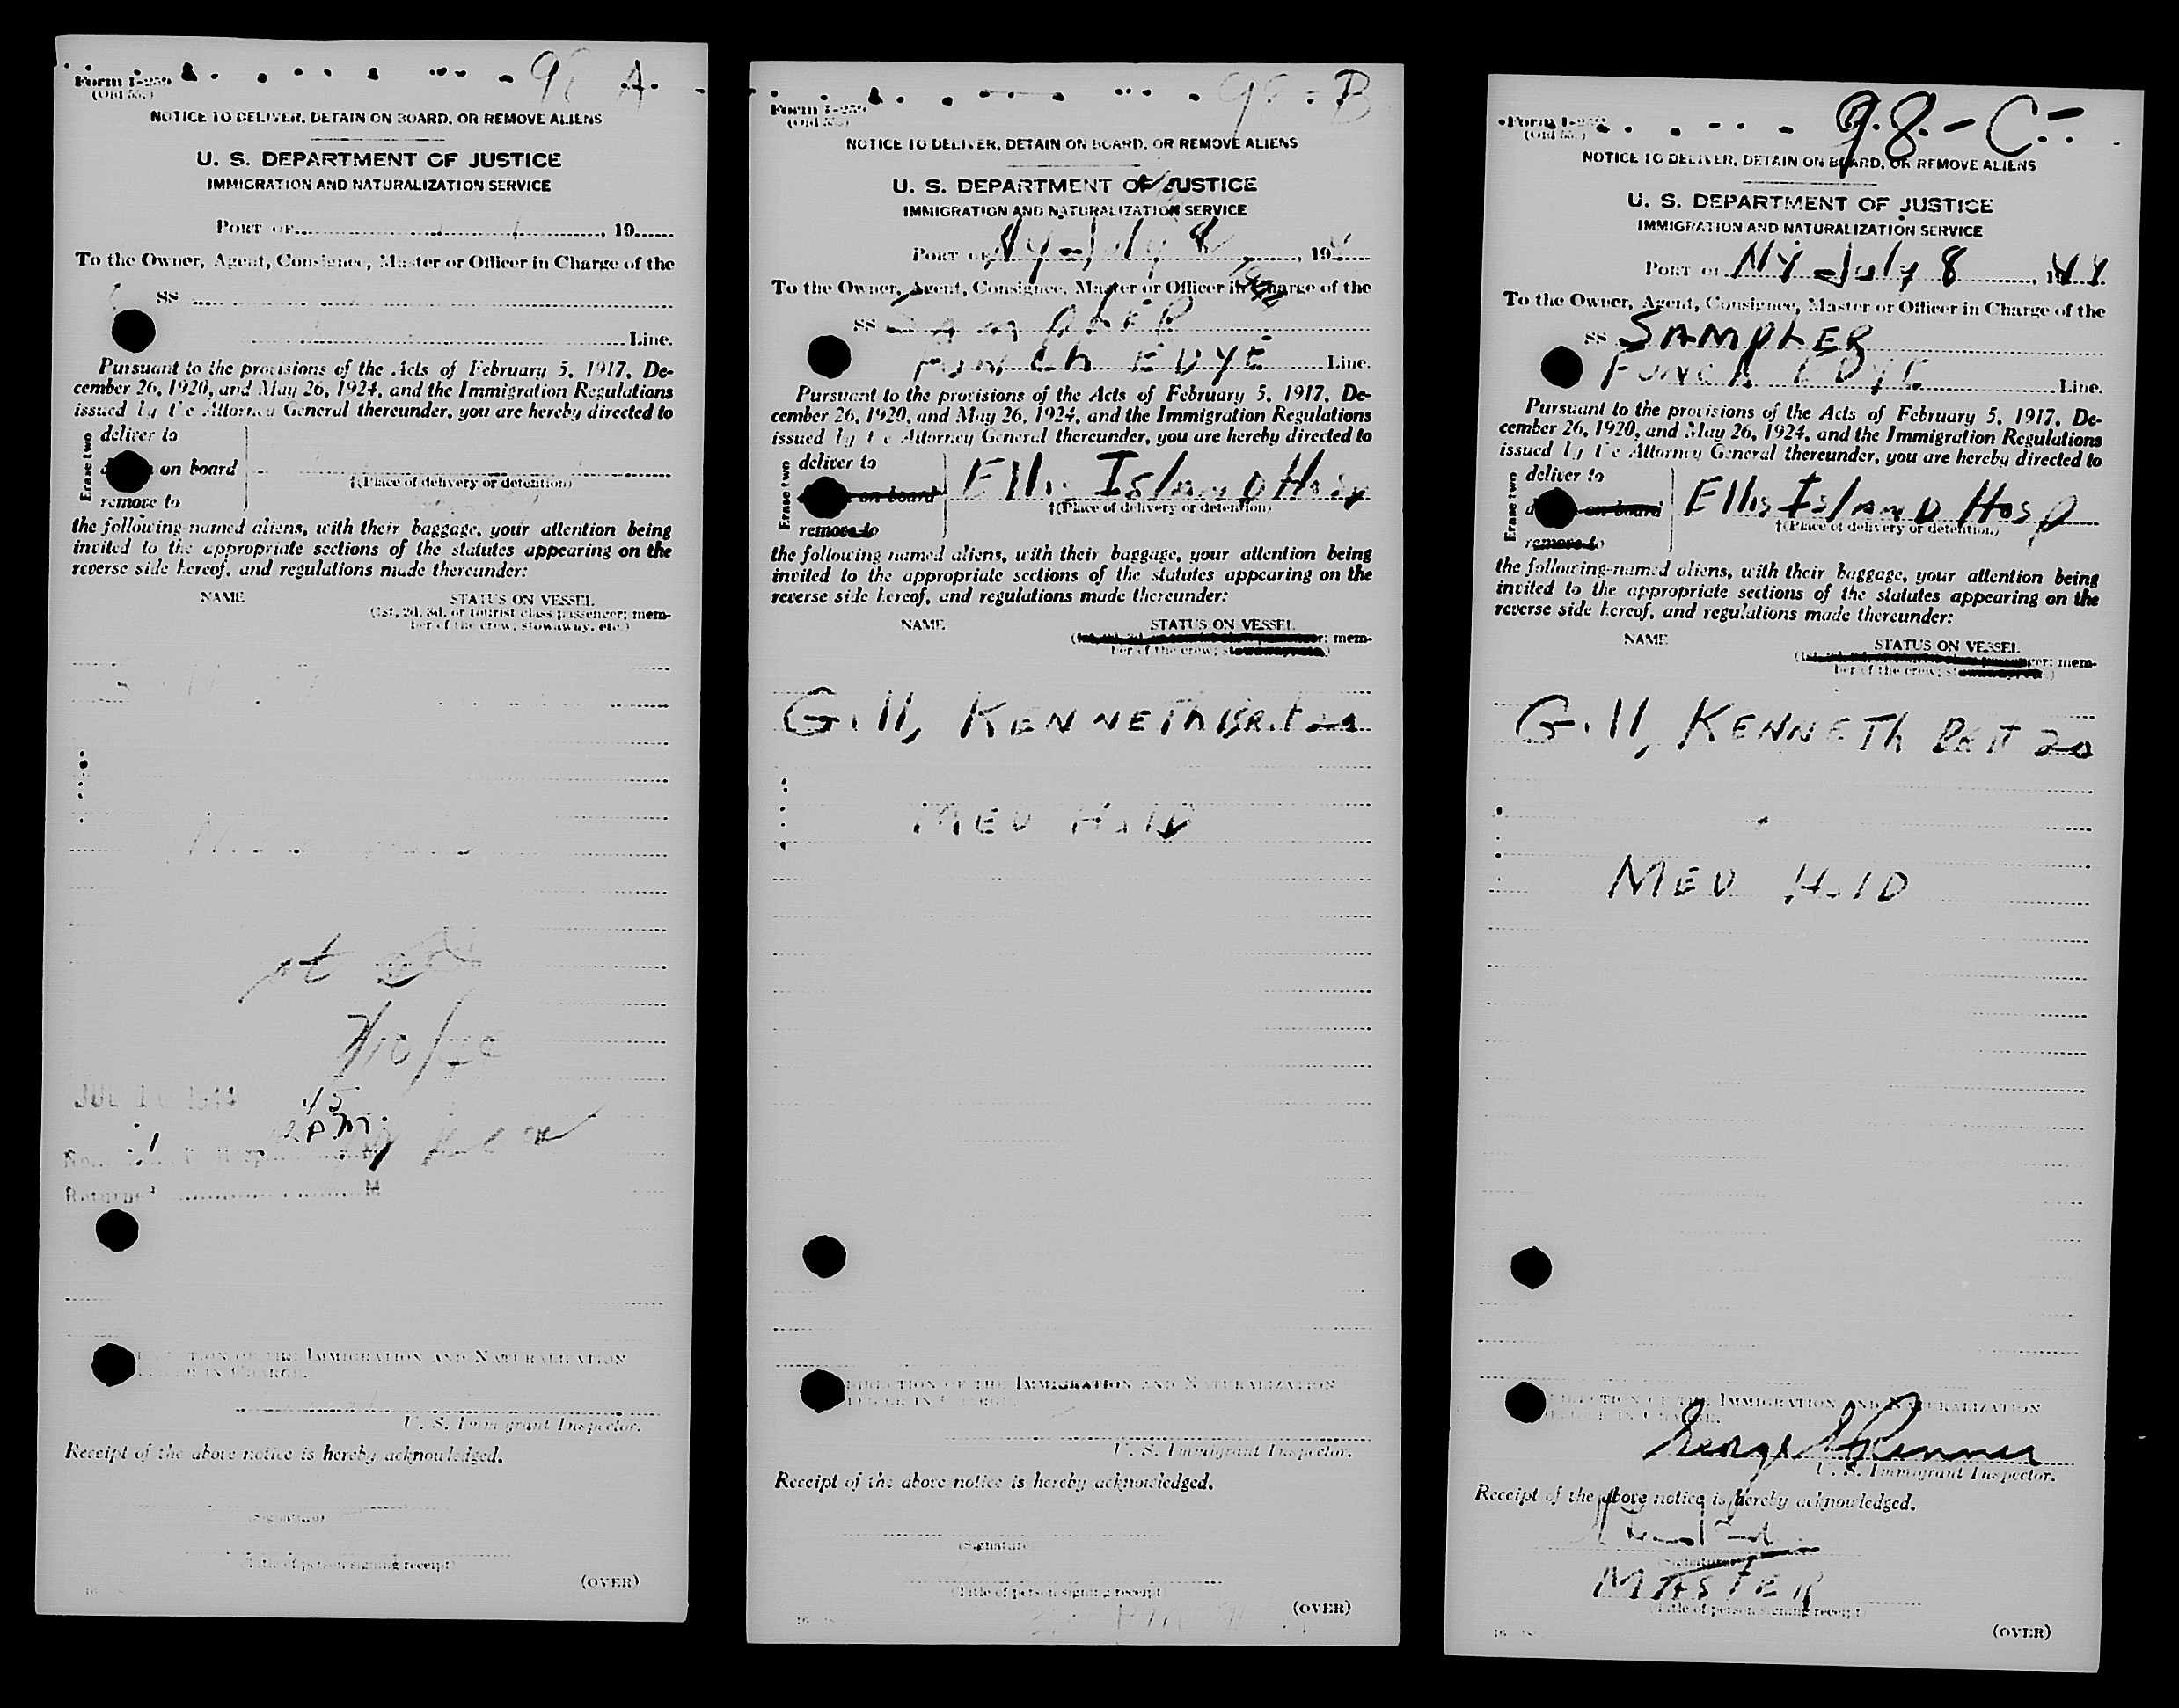 98 A.
Form I-259
(Old 555)
NOTICE TO DELIVER, DETAIN ON BOARD, OR REMOVE ALIENS
U. S. DEPARTMENT OF JUSTICE
IMMIGRATION AND NATURALIZATION SERVICE
PORT OF, 19
To the Owner, Agent, Consignee, Master or Officer in Charge of the
SS
Line.
Pursuant to the provisions of the Acts of February 5, 1917, De-
cember 26, 1920, and May 26, 1924, and the Immigration Regulations
issued by the Attorney General thereunder, you are hereby directed to
Erase two
deliver to
on board
†(Place of delivery or detention)
remove to
the following named aliens, with their baggage, your attention being
invited to the appropriate sections of the statutes appearing on the
reverse side hereof, and regulations made thereunder:
NAME STATUS ON VESSEL
(1st, 2d, 3d, or tourist class passenger; mem-
ber of the crew; stowaway, etc.)
7/10/
JUL 1 1944 45
PM
Returned M
TION OF THE IMMIGRATION AND NATURALIZATION
IN CHARGE.
U. S. Immigrant Inspector.
Receipt of the above notice is hereby acknowledged.
(Signature)
(Title of person signing receipt)
(OVER)
98 - B
Form I-259
(Old 555)
NOTICE TO DELIVER, DETAIN ON BOARD, OR REMOVE ALIENS
U. S. DEPARTMENT OF JUSTICE
IMMIGRATION AND NATURALIZATION SERVICE
PORT OF NY - July 8, 194
To the Owner, Agent, Consignee, Master or Officer in Charge of the
SS SAMPLER
FUNCH EDYE Line.
Pursuant to the provisions of the Acts of February 5, 1917, De-
cember 26, 1920, and May 26, 1924, and the Immigration Regulations
issued by the Attorney General thereunder, you are hereby directed to
Erase two
deliver to
on board Ellis Island Hosp
†(Place of delivery or detention)
remove to
the following named aliens, with their baggage, your attention being
invited to the appropriate sections of the statutes appearing on the
reverse side hereof, and regulations made thereunder:
NAME STATUS ON VESSEL
(1st, 2d, 3d, or tourist class passenger; mem-
ber of the crew; stowaway, etc.)
Gill, KENNETH Brit 20
MED HOLD
DIRECTION OF THE IMMIGRATION AND NATURALIZATION
OFFICER IN CHARGE.
U. S. Immigrant Inspector.
Receipt of the above notice is hereby acknowledged.
(Signature)
(Title of person signing receipt)
(OVER)
98 - C
Form I-259
(Old 555)
NOTICE TO DELIVER, DETAIN ON BOARD, OR REMOVE ALIENS
U. S. DEPARTMENT OF JUSTICE
IMMIGRATION AND NATURALIZATION SERVICE
PORT OF NY - July 8, 1944
To the Owner, Agent, Consignee, Master or Officer in Charge of the
SS SAMPLER
FUNCH EDYE Line.
Pursuant to the provisions of the Acts of February 5, 1917, De-
cember 26, 1920, and May 26, 1924, and the Immigration Regulations
issued by the Attorney General thereunder, you are hereby directed to
Erase two
deliver to
on board Ellis Island Hosp
†(Place of delivery or detention)
remove to
the following-named aliens, with their baggage, your attention being
invited to the appropriate sections of the statutes appearing on the
reverse side hereof, and regulations made thereunder:
NAME STATUS ON VESSEL
(1st, 2d, 3d, or tourist class passenger; mem-
ber of the crew; stowaway, etc.)
Gill, KENNETH Brit 20
MED HOLD
DIRECTION OF THE IMMIGRATION AND NATURALIZATION
OFFICER IN CHARGE.
George
U. S. Immigrant Inspector.
Receipt of the above notice is hereby acknowledged.
(Signature)
MASTER
(Title of person signing receipt)
(OVER)